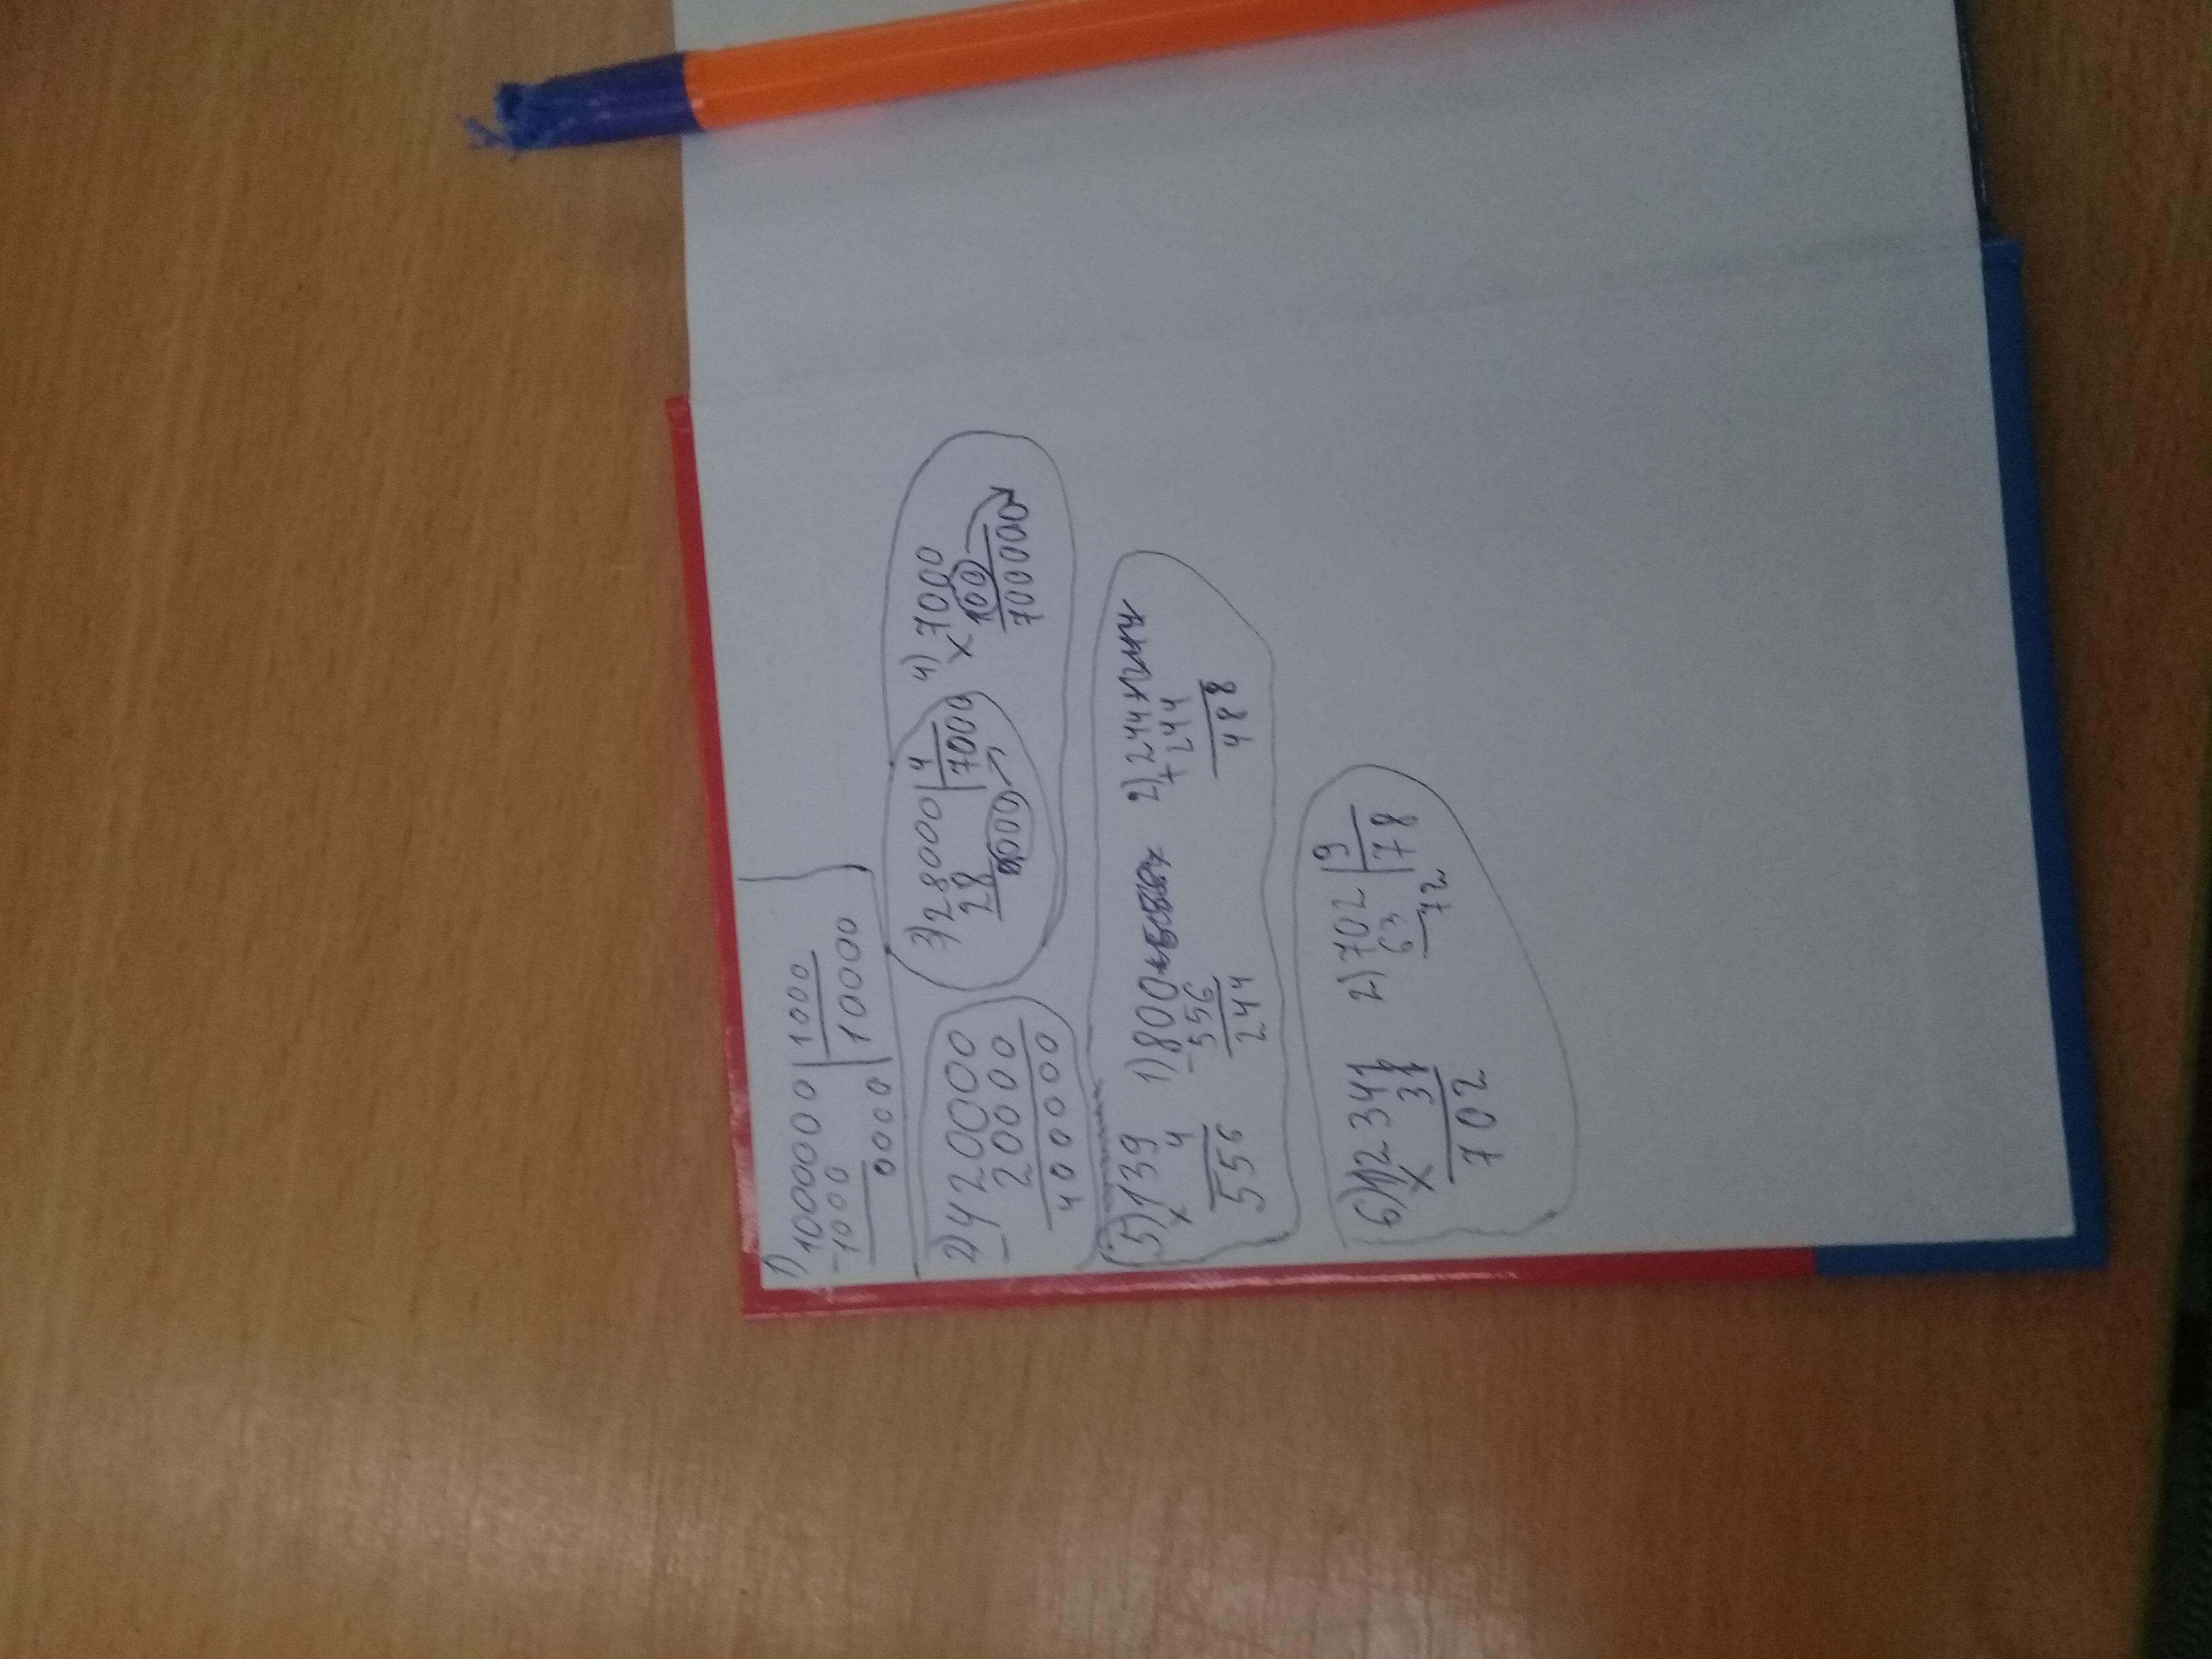 1)
10000000 | 1000
-1000 | 10000
0000
2) 420000
- 20000
400000
3) 28000 | 4
28 | 7000
000
4) 7000
x 100
700000
5) 139
x 4
556
1) 800
- 556
244
2) 244
+ 244
488
6) 1) 234
x 3
702
2) 702 | 9
63 | 78
72